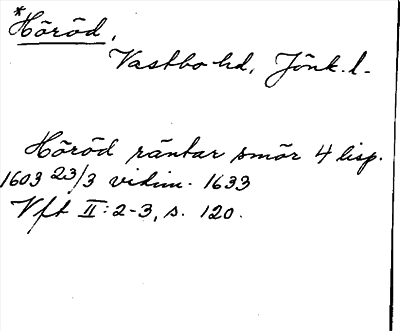 *Höröd,
Vastbo hd, Jönk. l.
Höröd räntar smör 4 lisp.
1603 23/3 vidim. 1633
Vft II:2-3, s. 120.